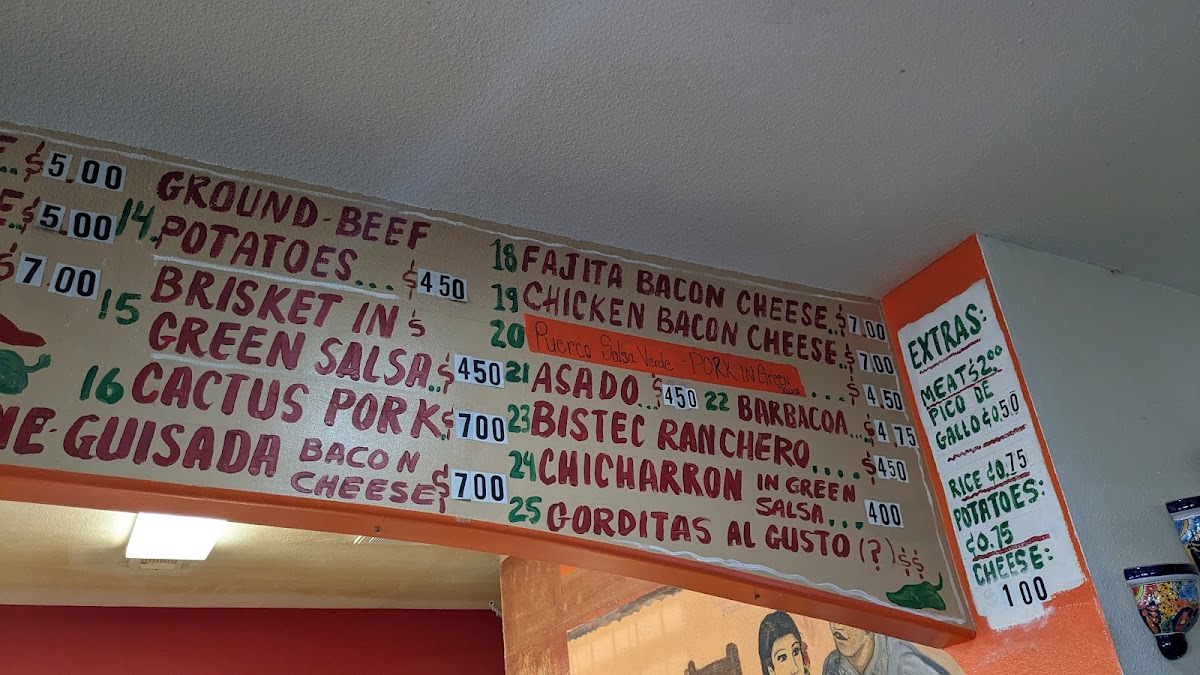 $5.00
$5.00
$7.00
14. GROUND-BEEF
POTATOES... $4.50
15 BRISKET IN $
GREEN SALSA..$4.50
16 CACTUS PORK.$7.00
GUISADA BACON
CHEESE $7.00
18 FAJITA BACON CHEESE..$7.00
19 CHICKEN BACON CHEESE..$7.00
20 Puerco Salsa Verde - PORK IN Green
Sauce ....$4.50
21 ASADO...$4.50 22 BARBACOA...$4.75
23 BISTEC RANCHERO....$4.50
24 CHICHARRON IN GREEN
SALSA...4.00
25 GORDITAS AL GUSTO (?)$$
EXTRAS:
MEAT $2.00
PICO DE
GALLO ¢0.50
RICE ¢0.75
POTATOES:
¢0.75
CHEESE:
1.00